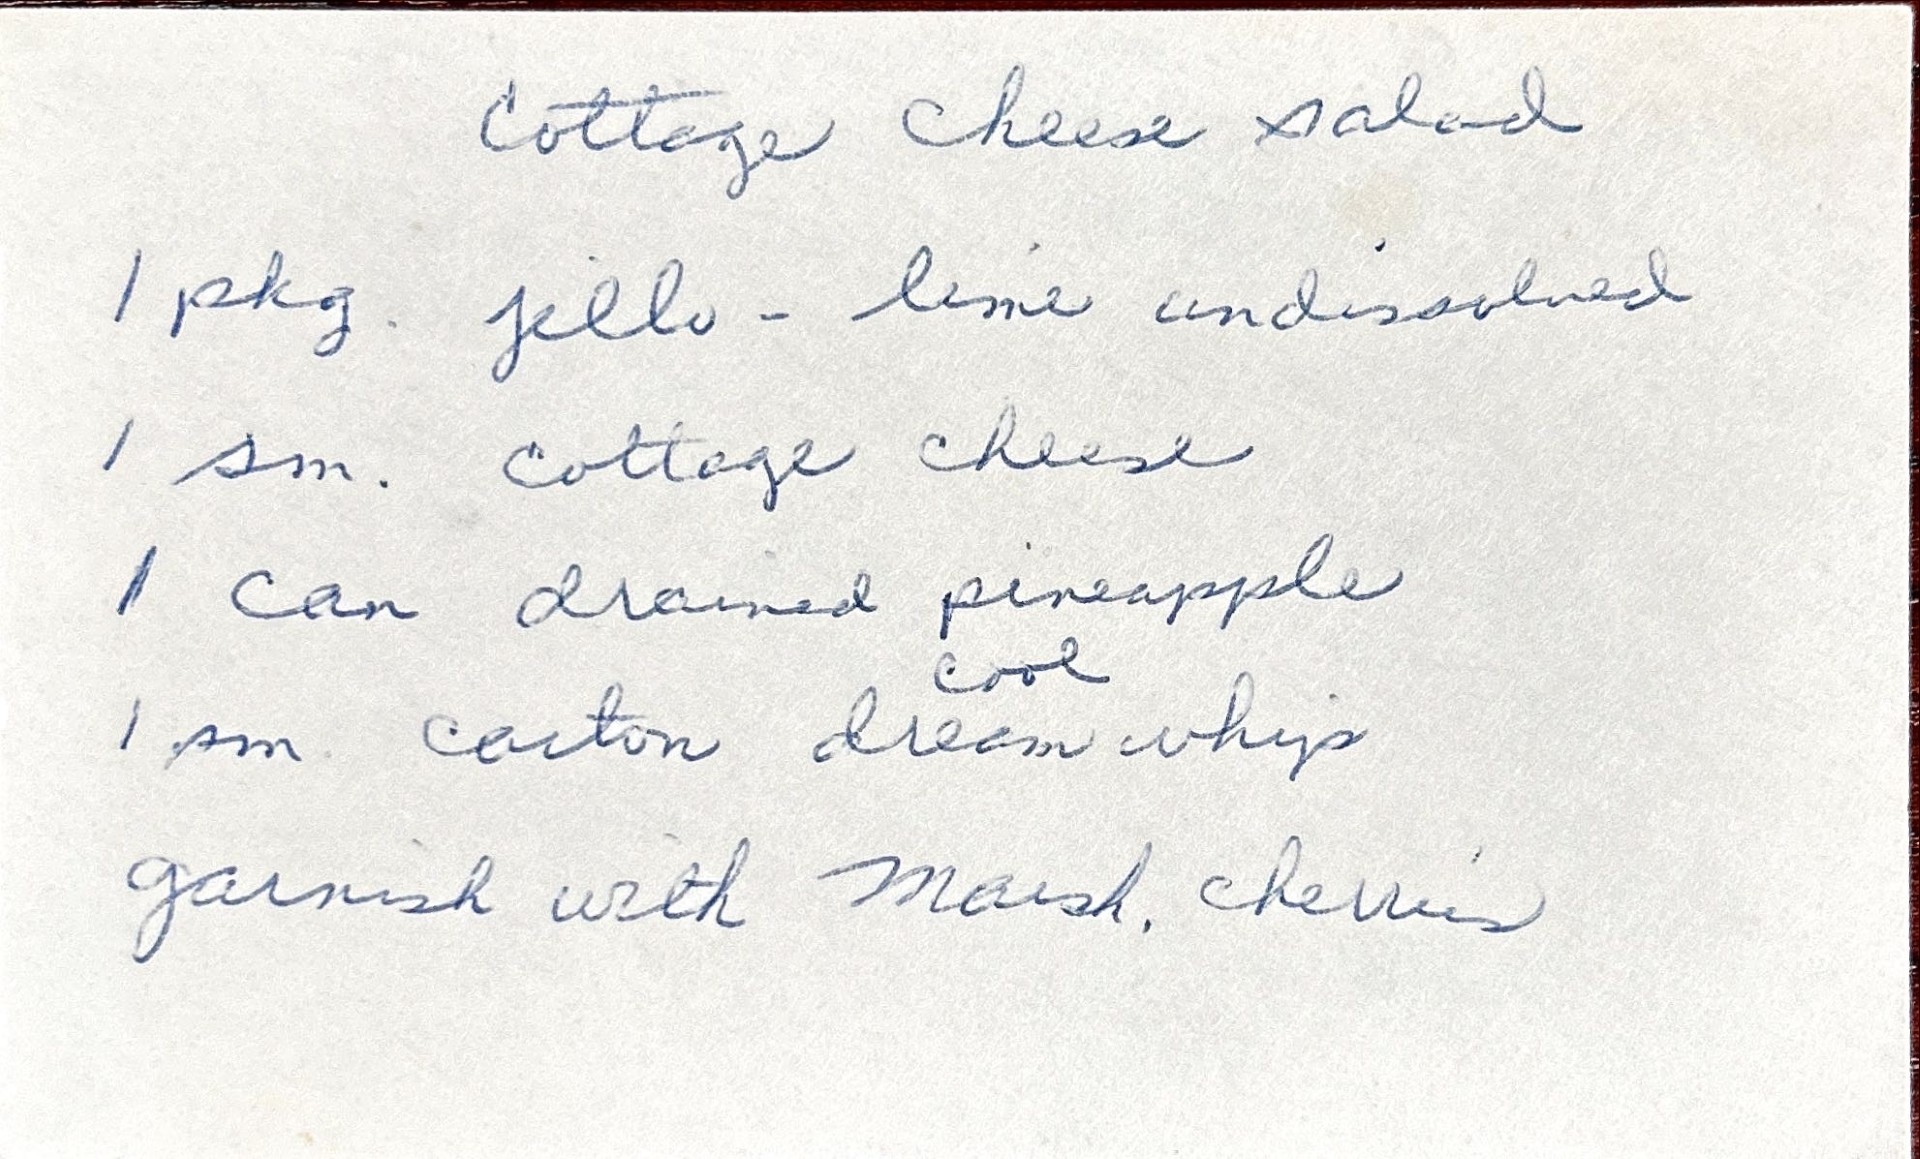 Cottage cheese salad
1 pkg. jello - lime undissolved
1 sm. cottage cheese
1 can drained pineapple
cool
1 sm carton dream whip
garnish with Marsh. cherries